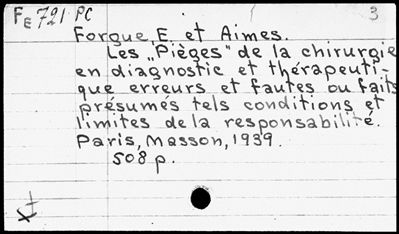 FE 721 PC 3
Forgue, E. et Aimes.
Les „Pièges" de la chirurgie
en diagnostic et thérapeuti-
que erreurs et fautes ou faits
présumés tels conditions et
limites de la responsabilité.
Paris, Masson, 1939.
508 p.